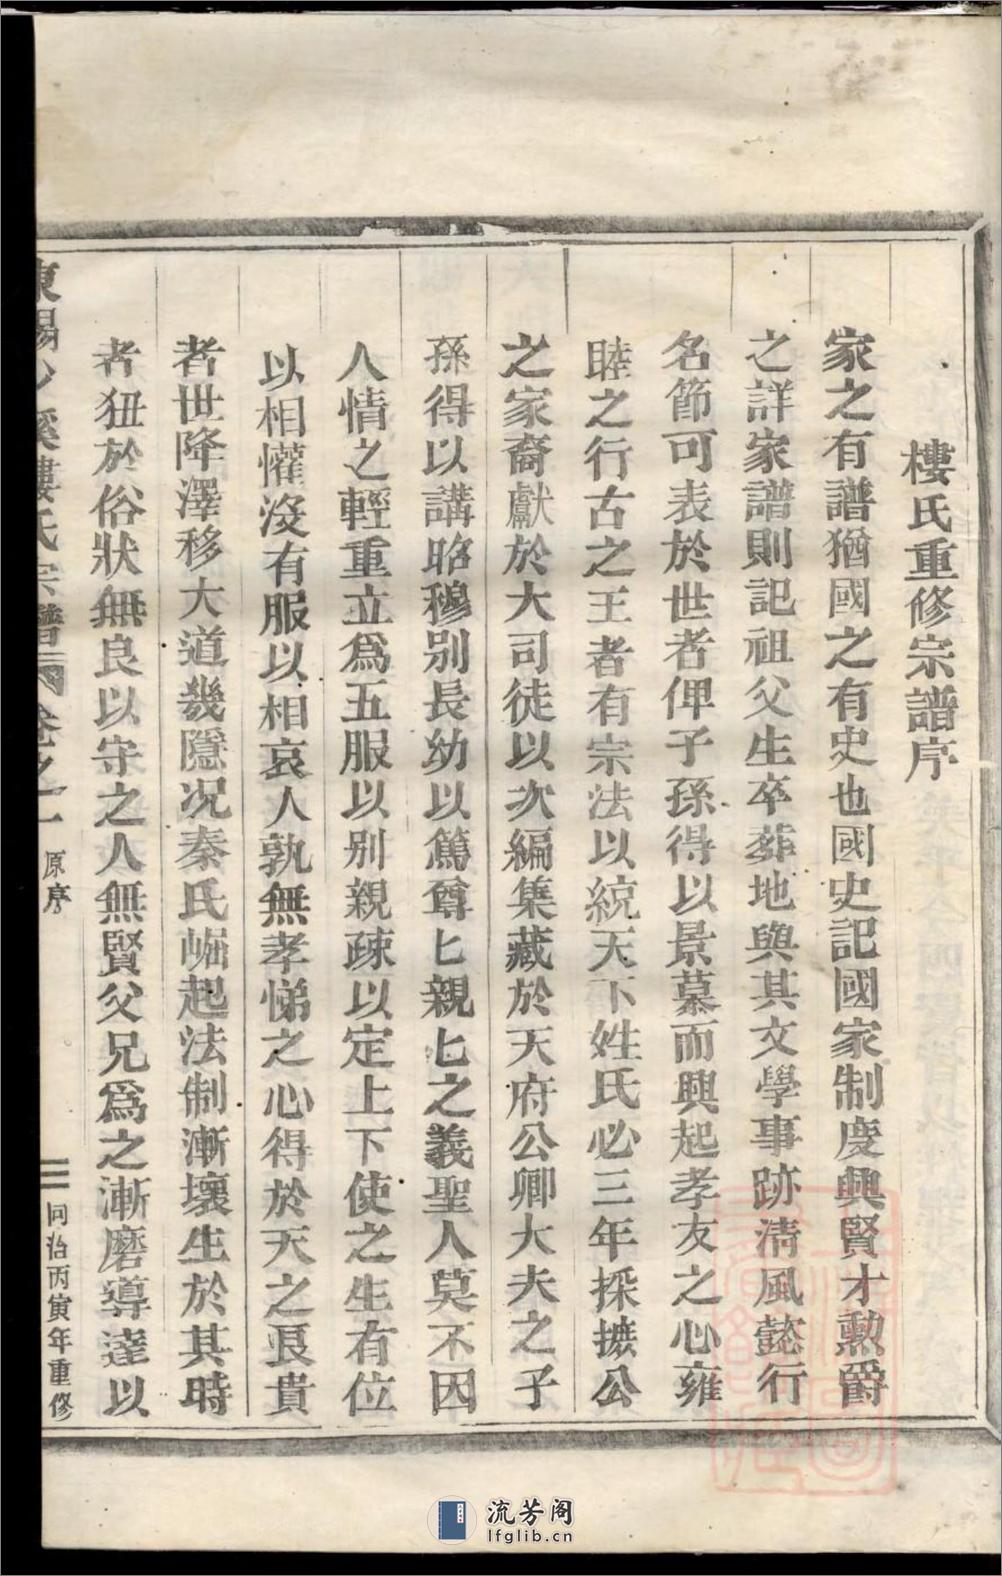 樓氏重修宗譜序
家之有譜猶國之有史也國史記國家制慶興賢才勲爵
之詳家譜則記祖父生卒葬地與其文學事跡清風懿行
名節可表於世者俾子孫得以景慕而興起孝友之心雍
睦之行古之王者有宗法以統天下姓氏必三年採摭公
之家裔獻於大司徒以次編集藏於天府公卿大夫之子
孫得以講昭穆别長幼以篤尊匕親匕之義聖人莫不因
人情之輕重立爲五服以别親疎以定上下使之生有位
以相懽沒有服以相哀人孰無孝悌之心得於天之良貴
者世降澤移大道幾隱况秦氏崛起法制漸壞生於其時
者狃於俗狀無良以守之人無賢父兄爲之漸磨導達以
樓氏宗譜 卷之一 原序 同治丙寅年重修
流芳阁
lfglib.cn